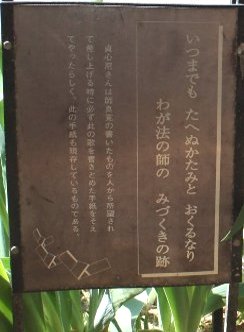 いつまでも　たへぬかたみと　おくるなり
わが法の師の　みづくきの跡
貞心尼さんは師良寛の書いたものを人から所望され
て差し上げる時に必ず此の歌を書きとめた手紙をそえ
てやったらしく、此の手紙も現存しているものである。